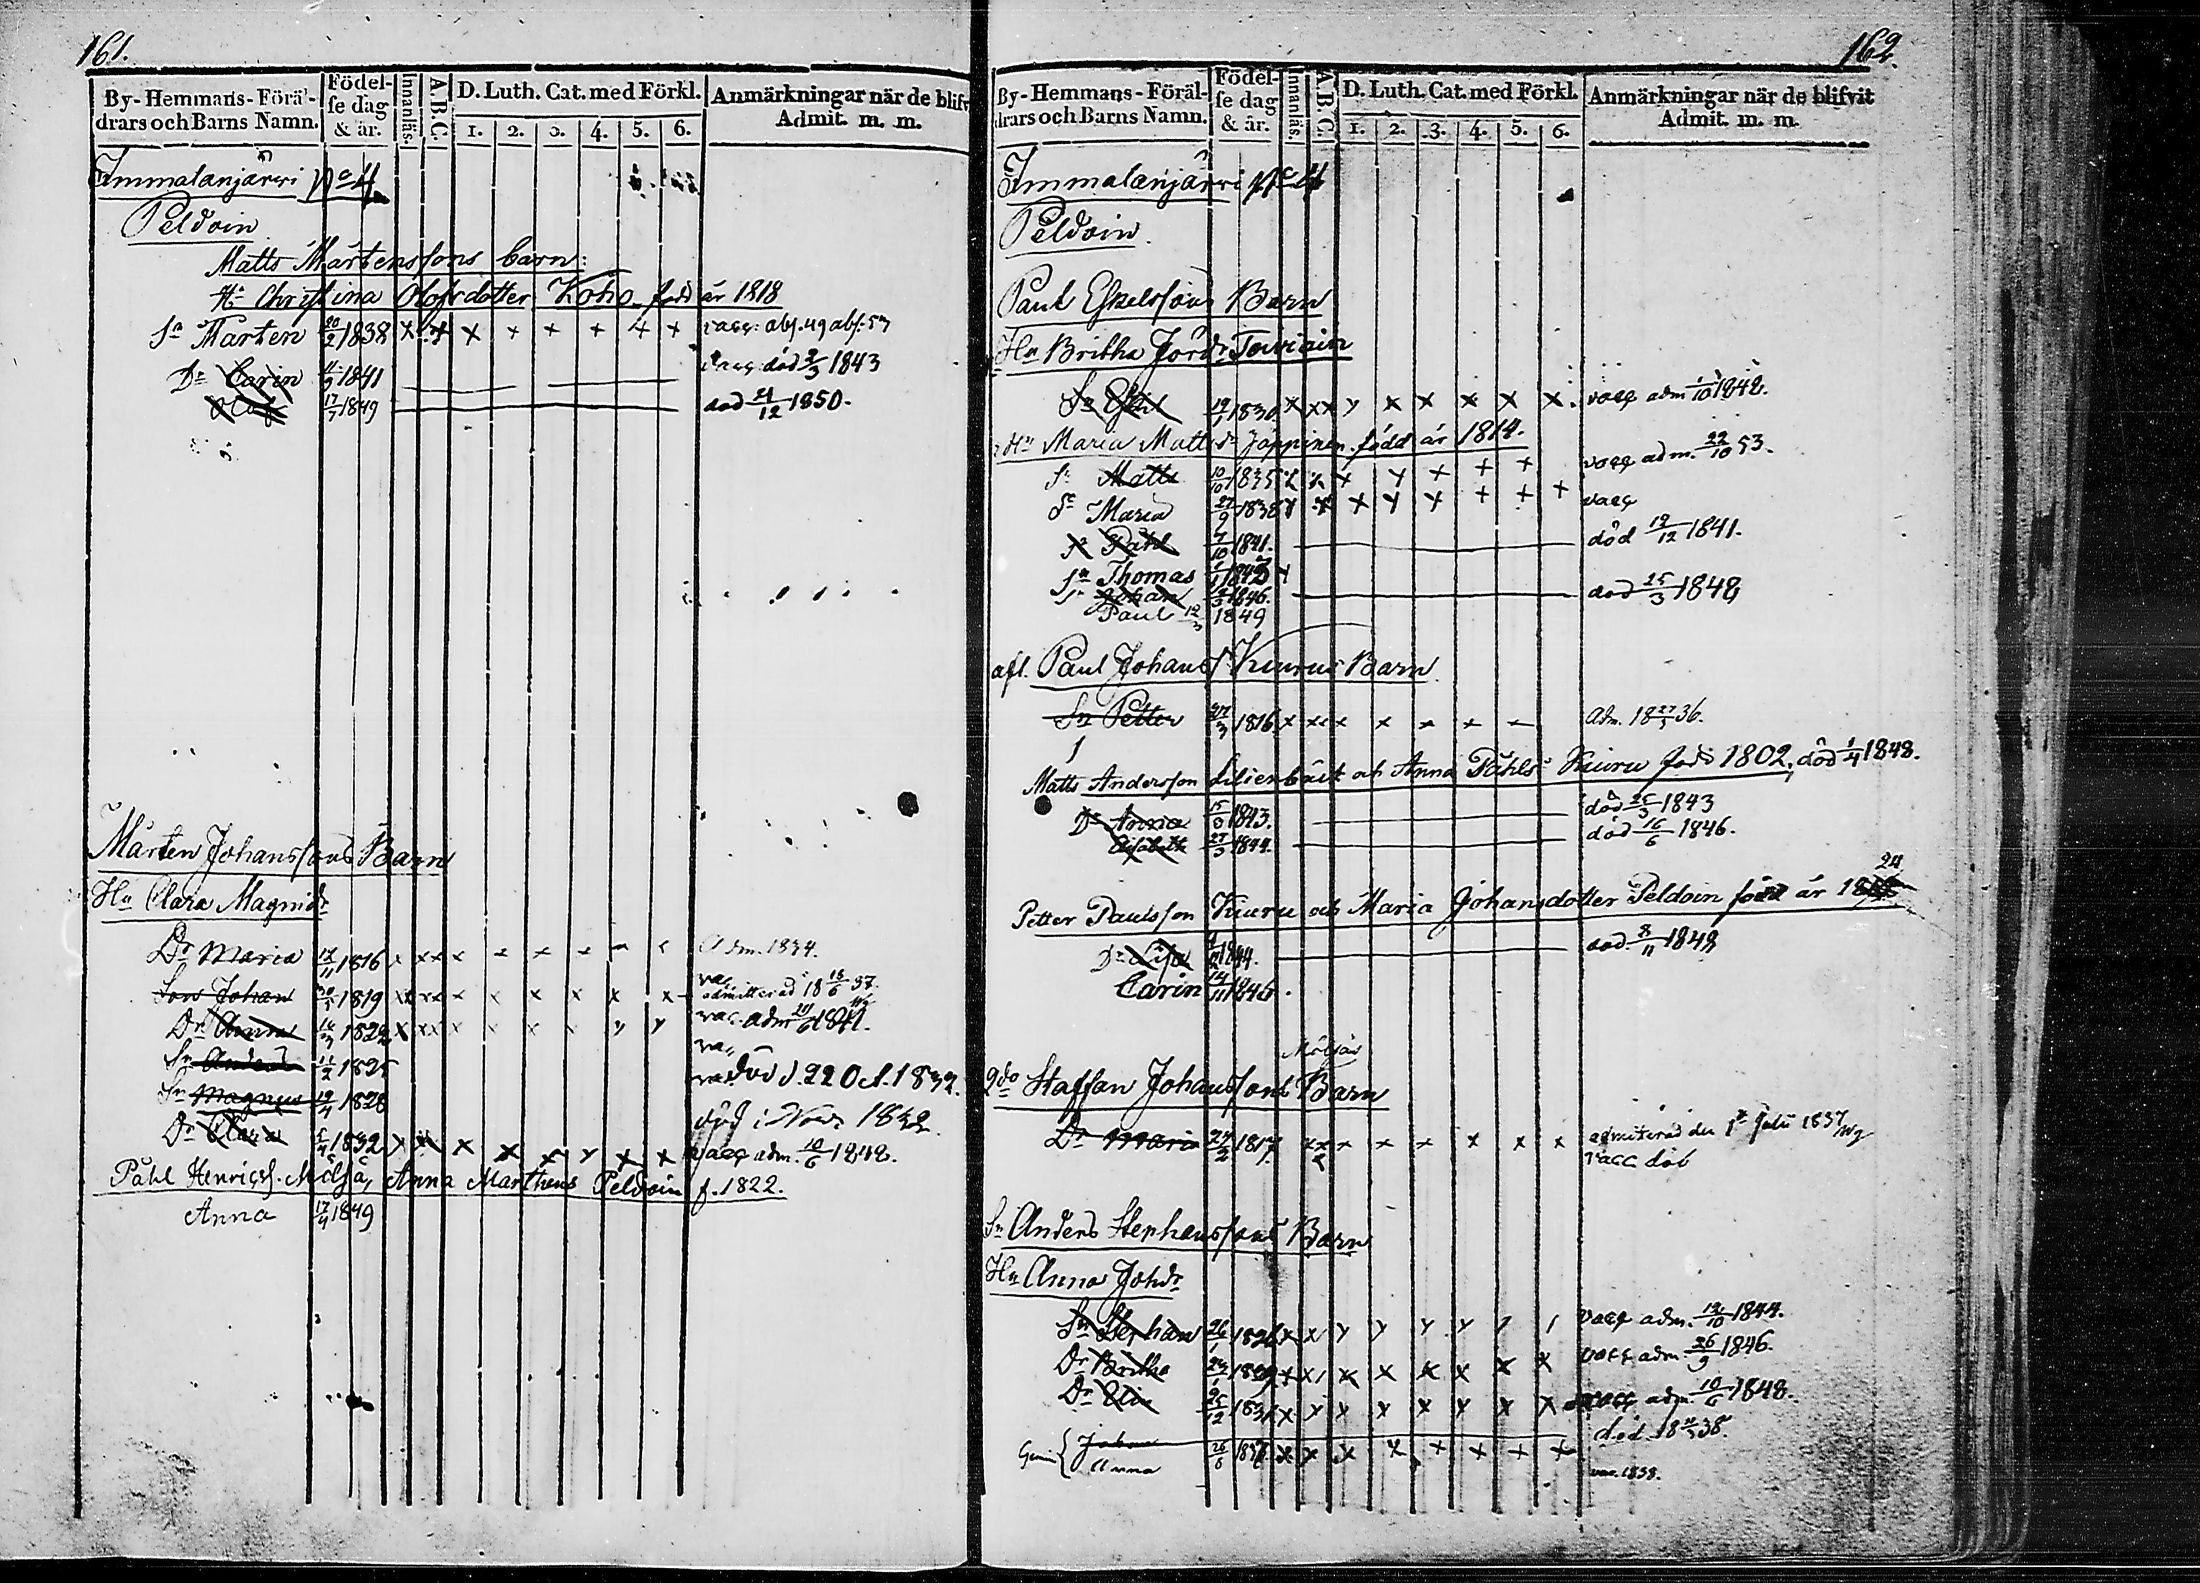 161.
By-Hemmans-Förä-
drars och Barns Namn.
Födel-
se dag
& år.
Innanläs.
A.B.C.
D. Luth. Cat. med Förkl.
1. 2. 3. 4. 5. 6.
Anmärkningar när de blifv
Admit. m. m.
Immalanjärwi No 4
Peldoin
Matts Mårtenssons barn:
Hu Christina Olofsdotter Koho född år 1818
Sn Mårten 20/2 1838 x x x x + + + + + vacc: abs. 49 abs: 53
Dr Carin 4/9 1841 vacc död 2/3 1843
Olof 17/7 1849 död 24/12 1850.
Mårten Johanssons Barn
Hu Clara Magnidr
Dr Maria 12/11 1816 x x x x Adm. 1834.
Son Johan 30/5 1819 x x x x x x x x x vac. admitterad 18 18/6 37.
Dr Anna 16/7 1822 x x x x vac. adm 24/6 1841.
Sn Anders 11/2 1825 död d. 22 Oct. 1832.
Sn Magnus 19/4 1828 död i Nov. 1832
Dr Clara 5/4 1832 x x x x x y x x vacc adm. 10/6 1848.
Påhl Henricss. Mölsä, Anna Marthens Peldoin f. 1822.
Anna 17/4 1849
162.
By-Hemmans-Föräl-
drars och Barns Namn.
Födel-
se dag
& år.
Innanläs.
A.B.C.
D. Luth. Cat. med Förkl.
1. 2. 3. 4. 5. 6.
Anmärkningar när de blifvit
Admit. m. m.
Immalanjärwi No 4
Peldoin
Paul Eskelssons Barn
Hu Britha Jördr Toiviain
Sn Eskil 1830 x x x y x x x x x vacc adm 1/10 1848.
2 Hu Maria Mattsdr Jäppinen född år 1814.
Sn Matts 10/10 1835 x x x y + + + vacc adm. 22/10 53.
Maria 27/9 1838 y x x y y + + + vacc
Sn Pahl 7/10 1841. död 19/12 1841.
Sn Thomas 1843
Sn Johan 1846. död 25/3 1848
Paul 12/3 1849
afl. Paul Johanss Kuurus Barn
Sn Petter 27/3 1816 x x x x x x x Adm. 18 27/5 36.
Matts Andersson Lilienbäck och Anna Påhlsdr Kuuru född 1802, död 1/4 1848.
Dr Anna 15/3 1843. död 25/3 1843
Elisabeth 27/3 1844. död 16/6 1846.
24
Petter Paulsson Kuuru och Maria Johansdotter Peldoin född år 18
Dr Lisa 1844. död 8/11 1848
Carin 14/11 1846.
Mölsäs
2do Staffan Johanssons Barn
Dr Maria 24/2 1817 x x x x x x x x admitterad den 1sta Julii 1837
vacc
Sn Anders Stephanssons Barn
Hu Anna Johdr
Sn Stephan 26/1 1826 x x y y y y 1 1 vacc adm. 12/10 1844.
Dr Britha 1829 x x x x x x x x vacc adm. 26/9 1846.
Dr Elin 25/12 1831 x y y x y y x x vacc adm. 10/6 1848.
Gemini Johan död. 18 38.
Anna 26/6 1837 x x x x + + + + vac. 1838.